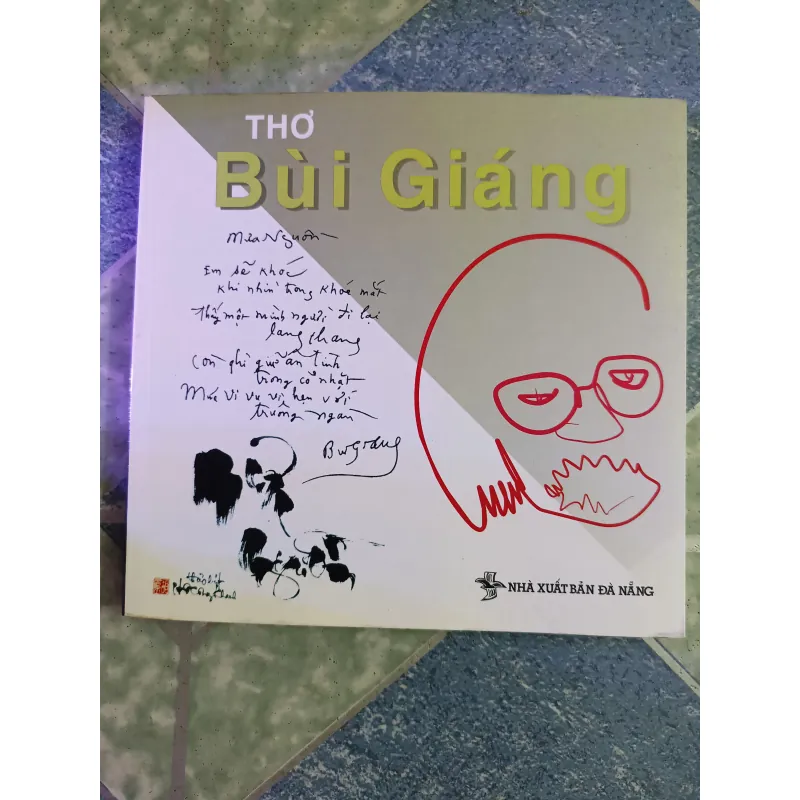 THƠ
Bùi Giáng
Mưa Nguồn
Em sẽ khóc
khi nhìn trong khóe mắt
Thấy một mình người đi lại
lang thang
Còn ghì giữ ân tình
trong cổ nhật
Múc vi vu vĩ hạn với
trường ngàn
Bùi Giáng
NHÀ XUẤT BẢN ĐÀ NẴNG